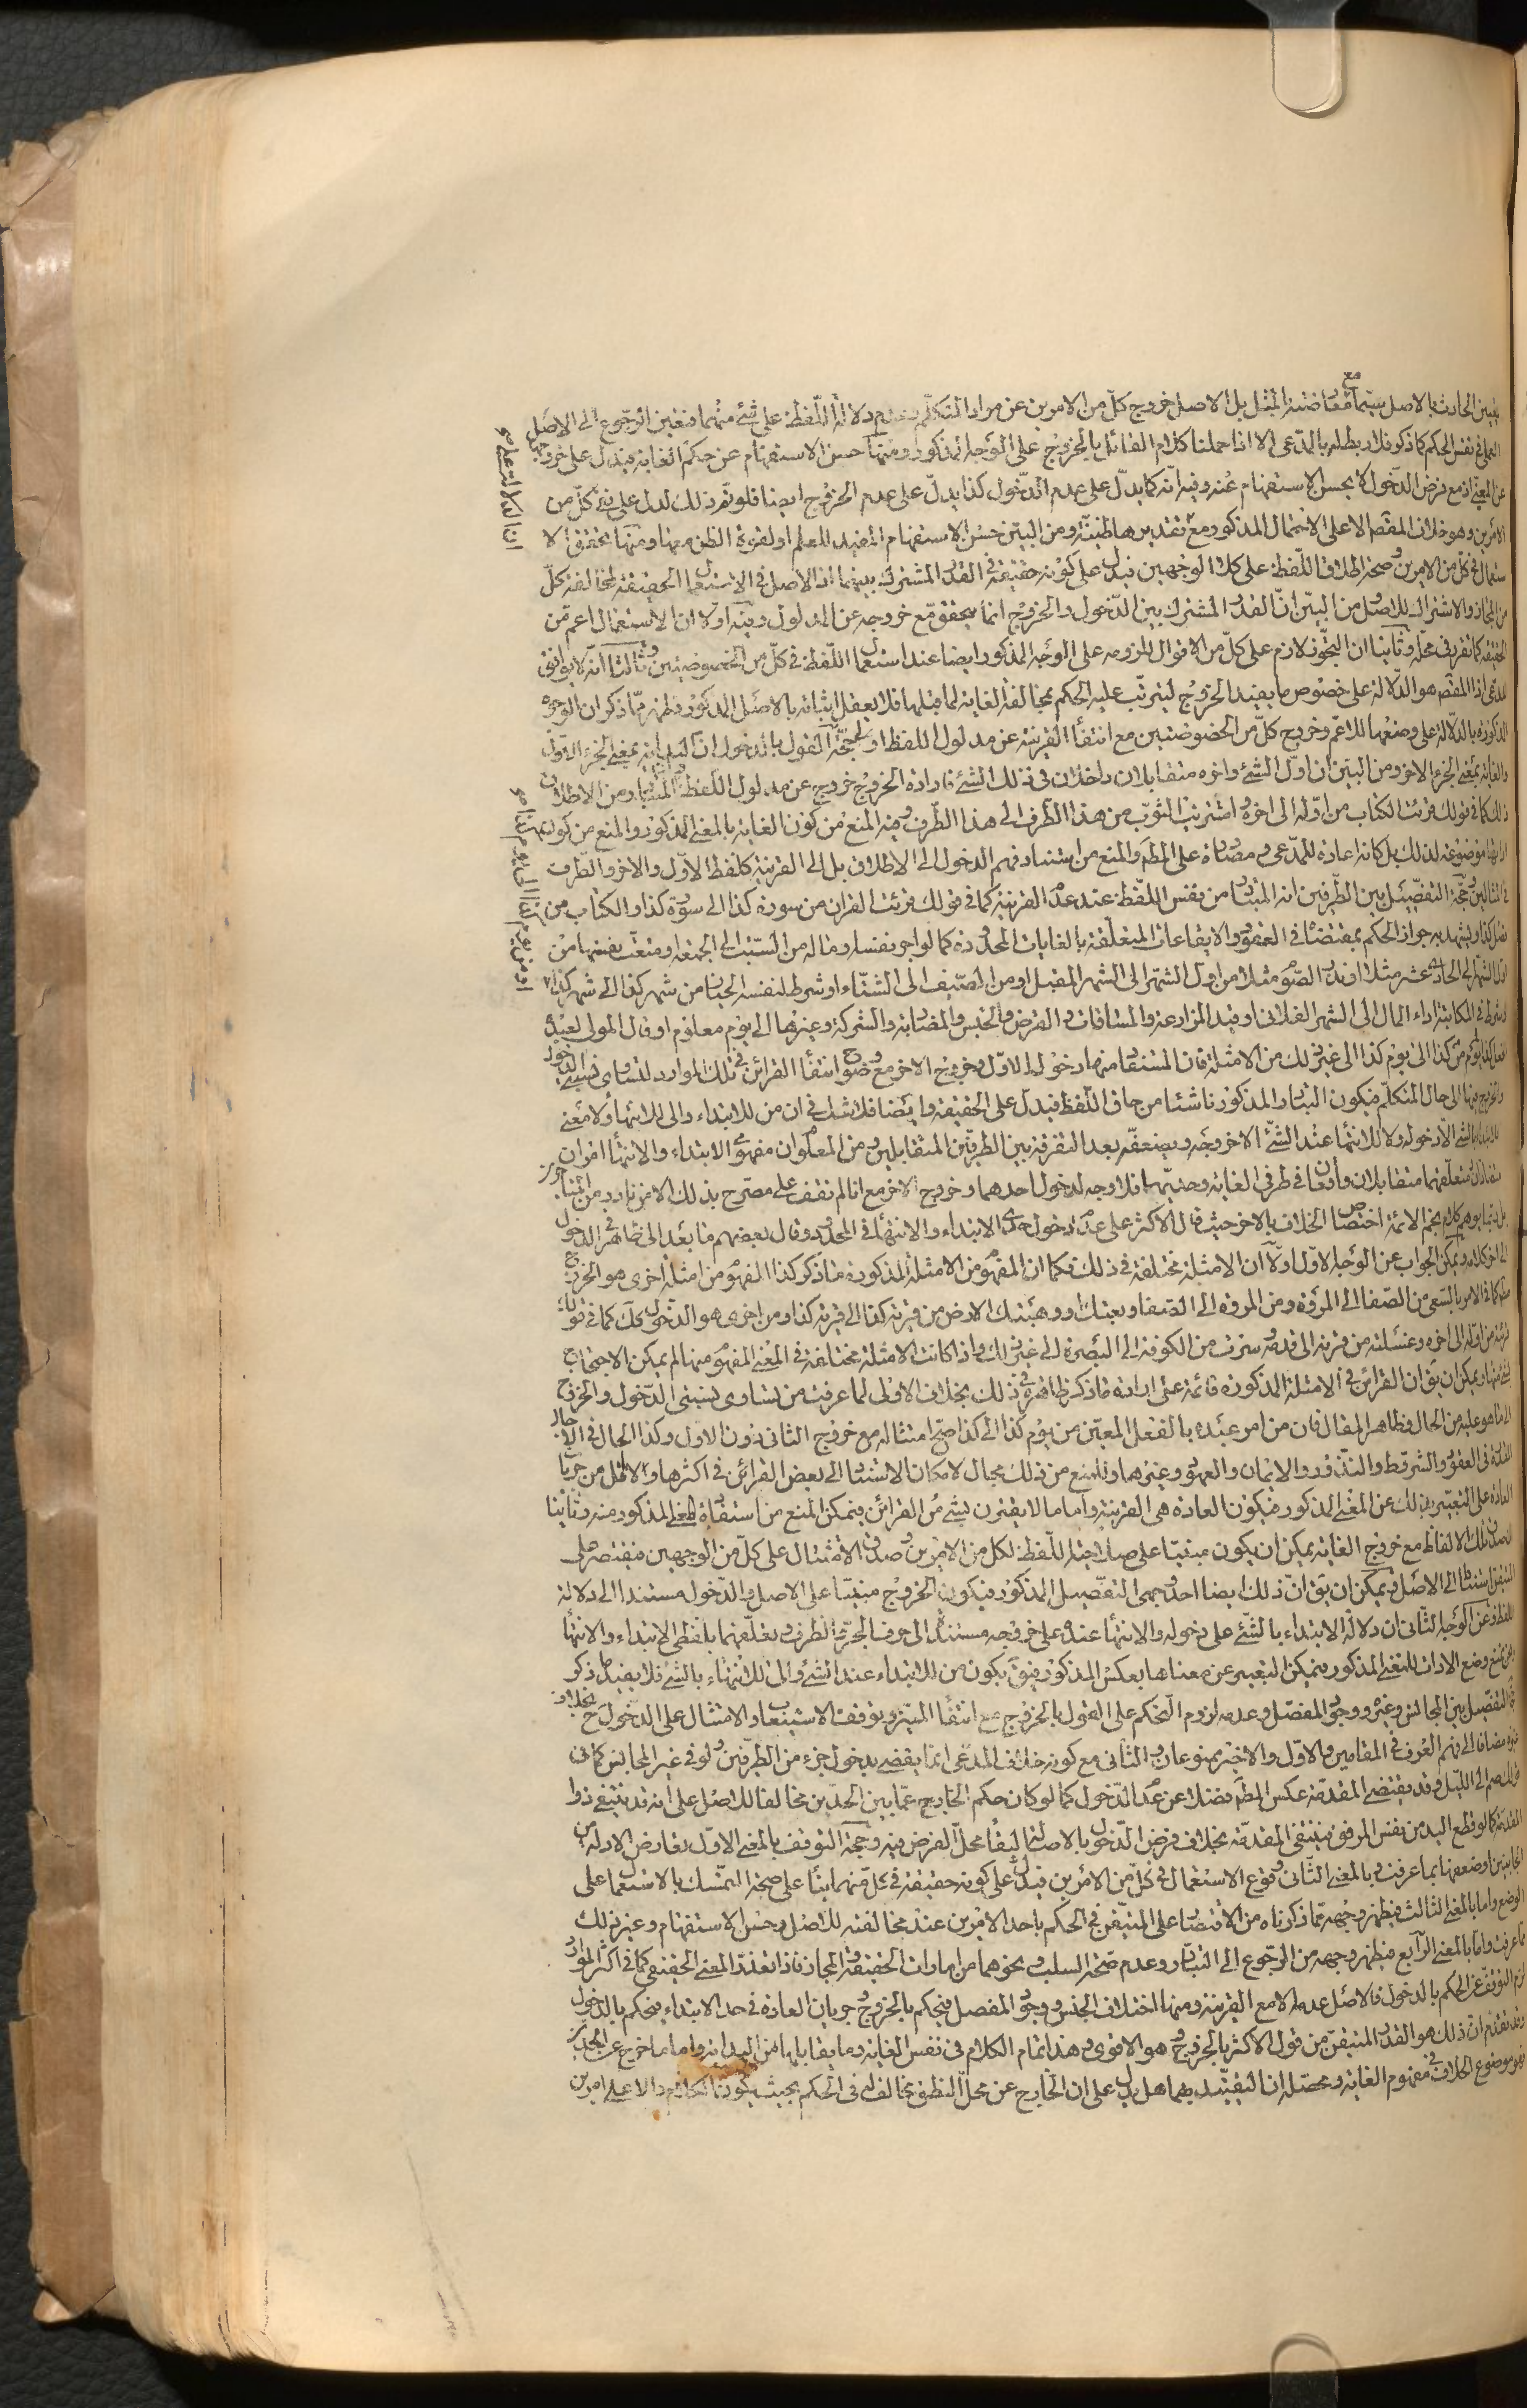 يتبين الحادث بالاصل سيّما مع معارضته بالمثل بل الاصل خروج كلّ من الامرين عن مراد المتكلّم وعدم دلالة اللّفظ على شئ منهما فتعين الرّجوع الى الاصل
العملى فى نفس الحكم كما ذكر فلا ربط له بالمدّعى الا اذا حملنا كلام القائل بالخروج على الوجه المذكور ومنها حسن الاستفهام عن حكم الغاية فيدل على خروجها
عن المغيّى اذ مع فرض الدّخول لا يحسن الاستفهام عنه وفيه انّه كما يدلّ على عدم الدّخول كذا يدلّ على عدم الخروج ايضا فلو تم ذلك لدل على نفى كلّ من
الامرين وهو خلاف المقصد الا على الاحتمال المذكور ومع تقديرها ظنيّة ومن البيّن حسن الاستفهام المفيد للعلم او لقوة الظن معها ومنها تحقق الا
ستعمال فى كلّ من الامرين وصحة اطلاق اللّفظ على كلا الوجهين فيدل على كونه حقيقة فى القدر المشترك بينهما اذ الاصل فى الاستعمال الحقيقة لمخالفة كلّ
من المجاز والاشتراك للاصل ومن البيّن انّ القدر المشترك بين الدّخول والخروج انما يتحقق مع خروجه عن المدلول وفيه اولا ان الاستعمال اعم من
الحقيقة كما تقرر فى محلّه وثانيا ان التجوّز لازم على كلّ من الاقوال للزومه على الوجه المذكور ايضا عند استعمال اللّفظ فى كلّ من الخصوصيتين وثالثا انّه لا يوافق
المدعى اذ المقصد هو الدّلالة على خصوص ما يفيد الخروج ليترتّب عليه الحكم بمخالفة الغاية لما قبلها فلا يعقل اثباته بالاصل المذكور فظهر ممّا ذكر ان الوجوه
المذكورة بالدّلالة على وضعها للاعمّ وخروج كلّ من الخصوصيتين مع انتفاء القرينة عن مدلول اللفظ اولى حجّة القول بالدخول انّ البداية بمعنى الجزء الاوّل
والغاية بمعنى الجزء الاخر ومن البيّن ان اوّل الشئ واخره متقابلان داخلان فى ذلك الشئ فارادة الخروج خروج عن مدلول اللفظ المتبادر من الاطلاق
ذلك كما فى قولك قرئت الكتاب من اوّله الى اخره واشتريت الثوب من هذا الطّرف الى هذا الطّرف وفيه المنع من كون الغاية بالمعنى المذكور والمنع من كون
اداتها موضوعة لذلك بل كانه اعادة للمدّعى ومصادرة على المطلوب والمنع من استناد فهم الدخول الى الاطلاق بل الى القرينة كلفظ الاوّل والاخر والطّرف
فى المثالين وحجّة التفصيل بين الطّرفين انه المتبادر من نفس اللّفظ عند عدم القرينة كما فى قولك قرئت القرآن من سورة كذا الى سورة كذا والكتاب من
فصل كذا ويشهد به جواز الحكم بمقتضاه فى العقود والايقاعات المتعلّقة بالغايات المحدّدة كما لو اجر نفسه او ماله من السّبت الى الجمعة او متعت نفسها من
اوّل الشهر الى الحادى عشر مثلا او نذر الصّوم مثلا من اول الشّهر الى الشهر المقبل او من الصّيف الى الشّتاء او شرط لنفسه الخيار من شهر كذا الى شهر كذا
او شرط فى المكاتبة اداء المال الى الشهر الفلانى او قيد المزارعة والمساقات والقرض والحبس والمضاربة والشركة وغيرها الى يوم معلوم او قال المولى لعبده
افعل كذا من يوم كذا الى يوم كذا الى غير ذلك من الامثلة فان المستفاد منها دخول الاوّل وخروج الاخر مع وضوح انتفاء القرائن فى تلك الموارد لتساوى نسبتى الدخول
والخروج فيها الى حال المتكلّم فيكون التبادر المذكور ناشئا من حاق اللّفظ فيدل على الحقيقة وايضا فلا شك فى ان من للابتداء والى للانتهاء ولا معنى
للابتداء بالشئ الا دخوله ولا للانتهاء عند الشّئ الا خروجه ويضعفه بعد التفرقة بين الطرفين المتقابلين ومن المعلوم ان مفهومى الابتداء والانتهاء امران
متضادّان متعلّقهما متقابلان واقعان فى طرفى الغاية وحديّها فلا وجه لدخول احدهما وخروج الاخر مع انا لم نقف على مصرّح بذلك الامر نادر من اصحابنا
بل ربّما يوهم كلام نجم الائمة اختصاص الخلاف بالاخر حيث قال الاكثر على عدم دخول حدّى الابتداء والانتهاء فى المحدود وقال بعضهم ما بعد الى ظاهر الدخول
الى اخر كلامه ويمكن الجواب عن الوجه الاول اولا ان الامثلة مختلفة فى ذلك فكما ان المفهوم من الامثلة المذكورة ما ذكر كذا المفهوم من امثلة اخرى هو الخروج
مطلقا كما فى الامر بالسّعى من الصّفا الى المروة ومن المروة الى الصّفا وبعتك او وهبتك الارض من قرية كذا الى قرية كذا ومن اخرى هو الدّخول كذلك كما فى قولك
قرئته من اوّله الى اخره وغسلته من قرنه الى قدمه وسرت من الكوفة الى البصرة الى غير ذلك واذا كانت الامثلة مختلفة فى المعنى المفهوم منها لم يمكن الاحتجاج
بشئ منها ويمكن ان يقال ان القرائن فى الامثلة المذكورة قائمة على ارادة ما ذكر ظاهرة فى ذلك بخلاف الاولى لما عرفت من تساوى نسبتى الدّخول والخروج
الى ما هو عليه من الحال وظاهر المقال فان من امر عبده بالفعل المعيّن من يوم كذا الى كذا صحّ امتثاله مع خروج الثانى دون الاول وكذا الحال فى الاجال
المقدّرة فى العقود والشروط والنذور والايمان والعهود وغيرهما وللمنع من ذلك مجال لامكان الاستناد الى بعض القرائن فى اكثرها ولا اقل من جريان
العادة على التعبير بذلك عن المعنى المذكور فيكون العادة هى القرينة واما ما لا يقترن بشئ من القرائن فيمكن المنع من استفادة المعنى المذكور منه وثانيا
ان صدق تلك الالفاظ مع خروج الغاية يمكن ان يكون مبنيّا على صلاحية اللّفظ لكل من الامرين وصدق الامتثال على كلّ من الوجهين فيقتصر على
المتيقن استنادا الى الاصل ويمكن ان يقال انّ ذلك ايضا احد وجهى التفصيل المذكور فيكون الخروج مبنيّا على الاصل والدّخول مستندا الى دلالة
اللفظ وعن الوجه الثّانى ان دلالة الابتداء بالشّئ على دخوله والانتهاء عنده على خروجه مستند الى حرف الجرّ والظرف وتعلّقهما بلفظى الابتداء والانتهاء
ومن منع وضع الاداة للمعنى المذكور فيمكن التعبير عن معناها بعكس المذكور فيقال يكون من للابتداء عند الشئ والى للانتهاء بالشئ فلا يفيد ما ذكر
حجّة التفصيل بين المجانس وغيره ووجود المفصل وعدمه لزوم التحكم على القول بالخروج مع انتفاء المميّز وتوقف الاستيعاب والامتثال على الدّخول ح بخلاف
غيره مضافا الى فهم العرف فى المقامين والاوّل والاخير ممنوعان والثانى مع كونه خلاف المدّعى انما يقضى بدخول جزء من الطّرفين ولو فى غير المجانس كما فى
قولك صم الى اللّيل وقد يقتضى المقدّمة عكس المطلوب فضلا عن عدم الدّخول كما لو كان حكم الخارج عمّا بين الحدّين مخالفا للاصل على انه قد ينتفى ذو
المقدّمة كما لو قطع اليد من نفس المرفق فينتفى المقدّمة بخلاف فرض الدّخول بالاصالة لبقاء محلّ الفرض فيه وحجة التوقف بالمعنى الاوّل تعارض الادلة من
الجانبين وضعفها بما عرفت وبالمعنى الثّانى وقوع الاستعمال فى كلّ من الامرين فيدل على كونه حقيقة فى كلّ منهما بناء على صحة التمسّك بالاستعمال على
الوضع واما بالمعنى الثالث فيظهر وجهه ممّا ذكرناه من الاقتصار على المتيقّن فى الحكم باحد الامرين عند مخالفته للاصل وحسن الاستفهام وغير ذلك
مما عرفت واما بالمعنى الرّابع فيظهر وجهه من الرّجوع الى التبادر وعدم صحّة السلب ونحوهما من امارات الحقيقة والمجاز فاذا تعذر المعنى الحقيقى كما فى اكثر الموارد
لزم التوقف عن الحكم بالدخول فالاصل عدمه الا مع القرينة ومنها اختلاف الجنس ووجود المفصل فيحكم بالخروج وجريان العادة فى حد الابتداء فيحكم بالدخول
وقد تقدم ان ذلك هو القدر المتيقن من قول الاكثر بالخروج وهو الاقوى هذا تمام الكلام فى نفس الغاية وما يقابلها من البداية واما ما خرج عن الحدين
فهو موضوع الخلاف فى مفهوم الغاية ومحصّله ان التقييد بهما هل يدل على ان الخارج عن محلّ النطق مخالف له فى الحكم بحيث يكون الكلام دالا على امرين